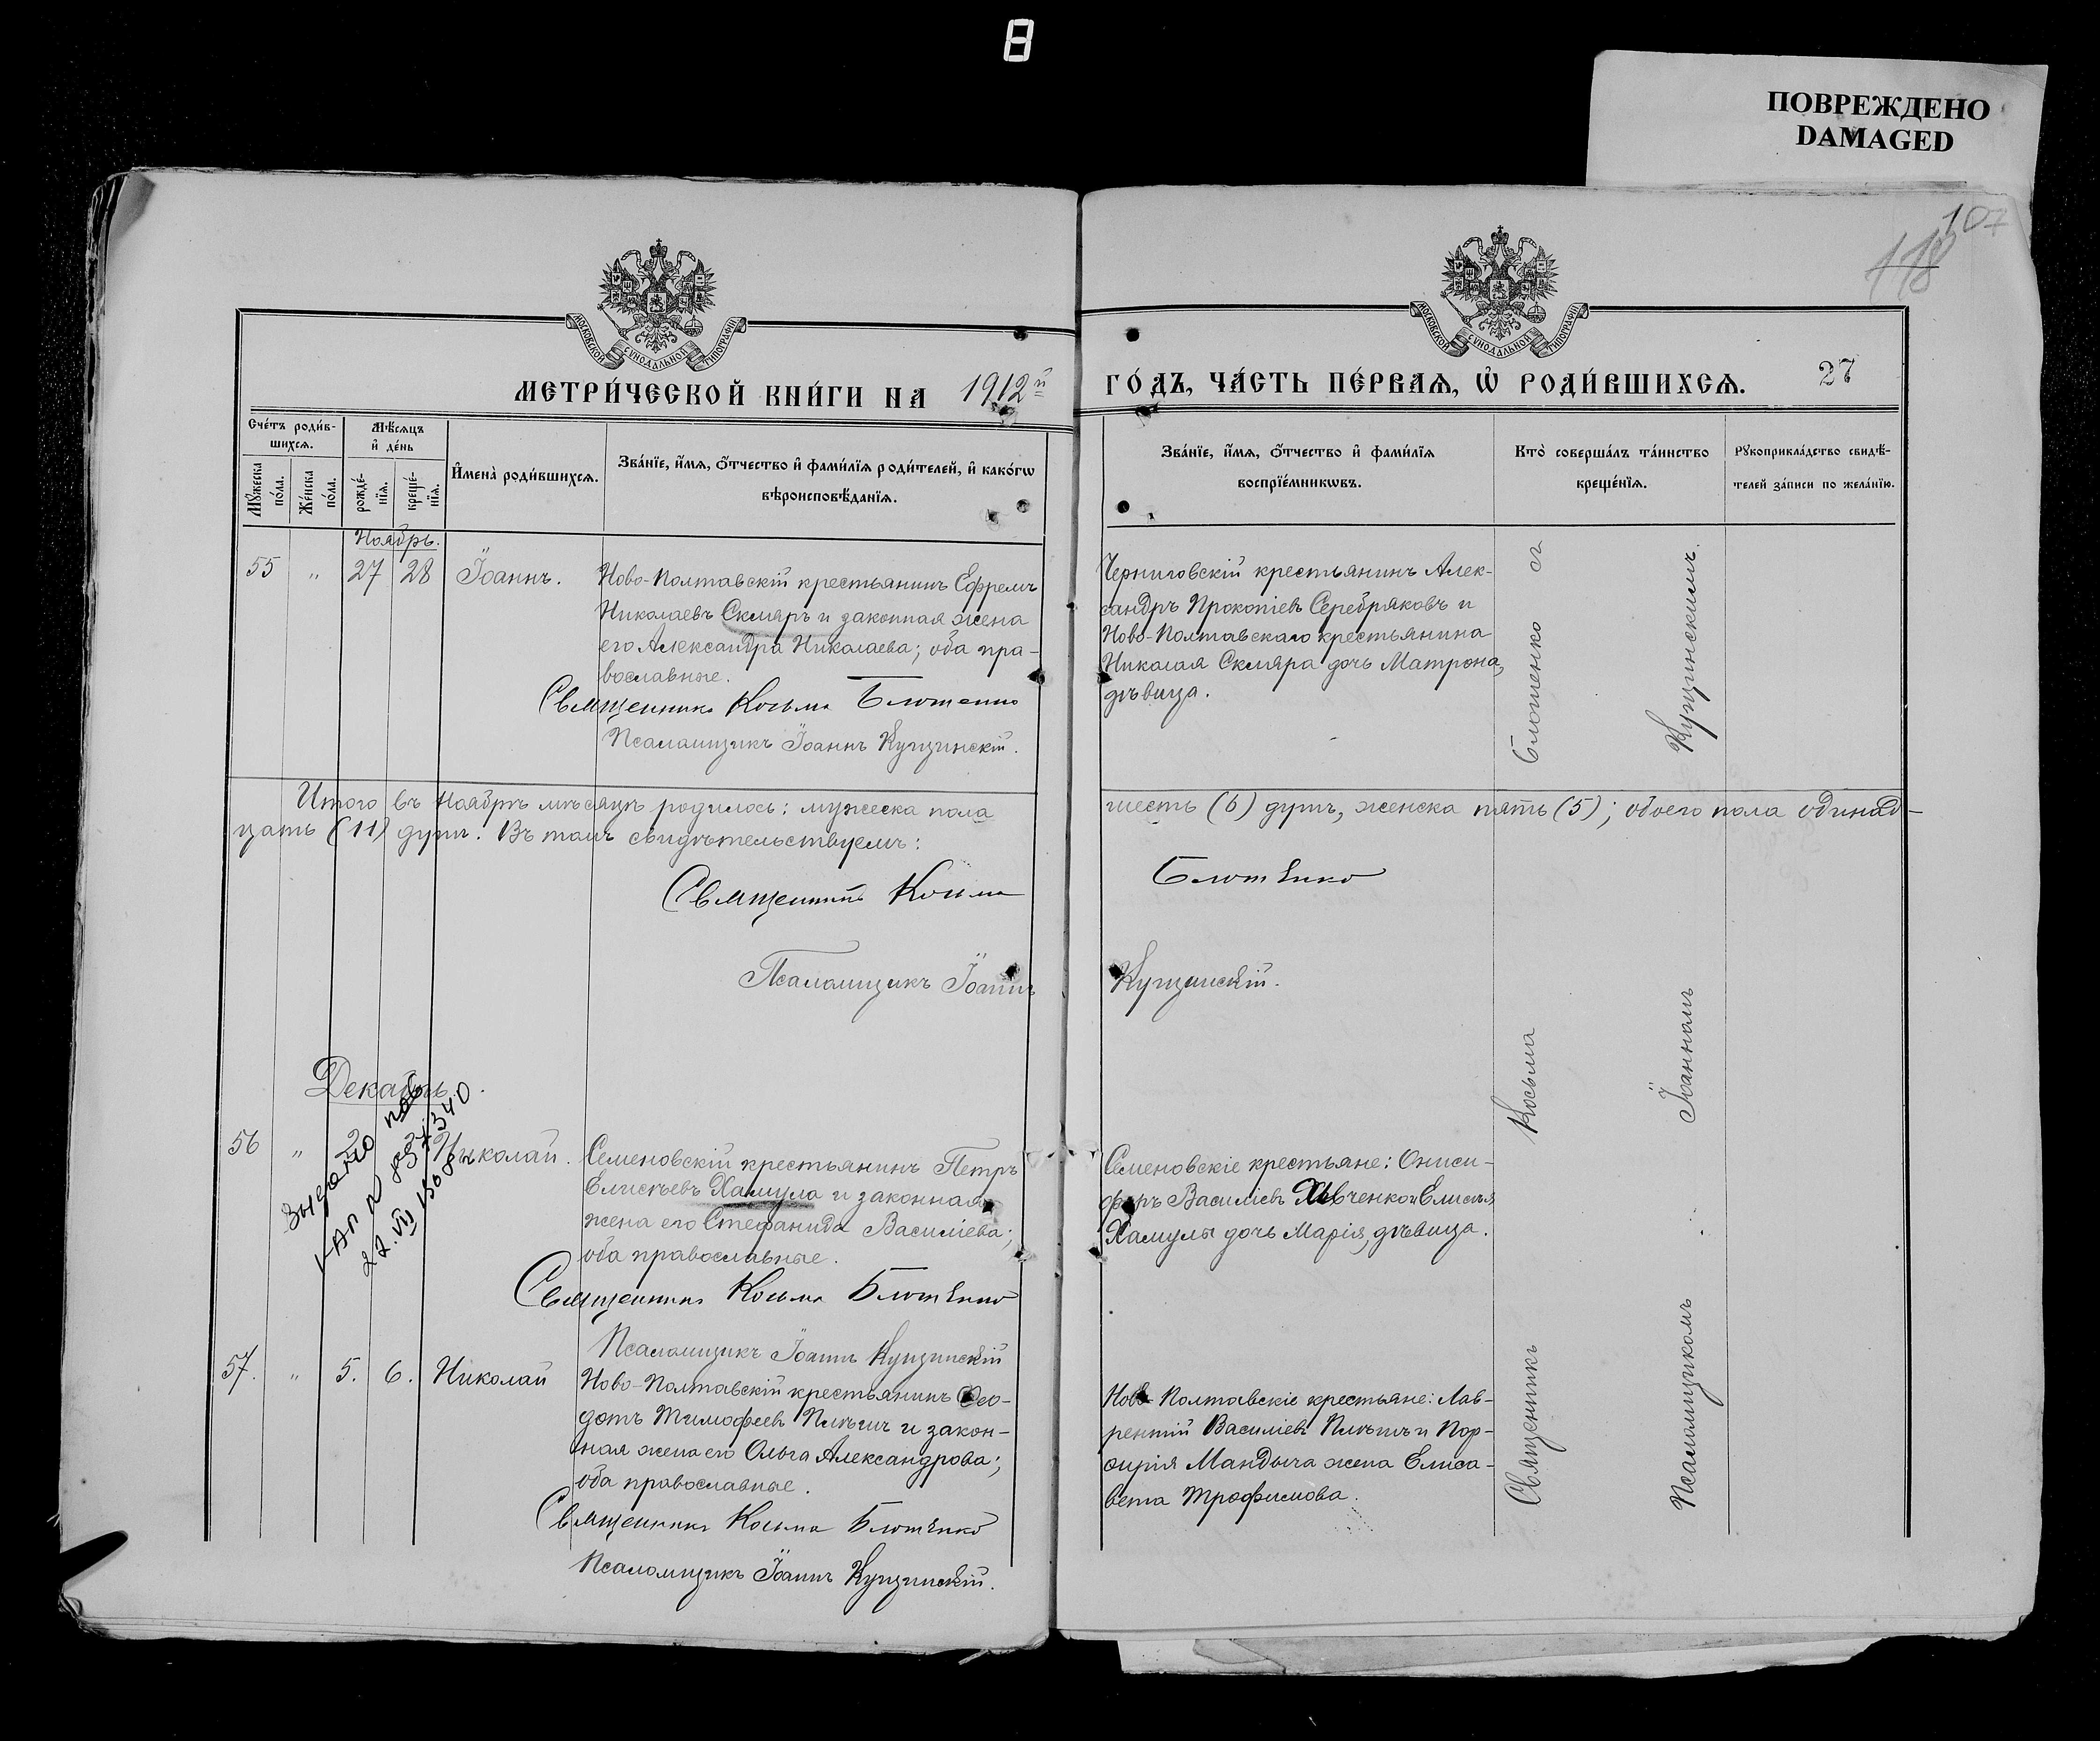 8
ПОВРЕЖДЕНО
DAMAGED
107
118
МОСКОВСКОЙ СѴНОДАЛЬНОЙ ТИПОГРАФІИ
МОСКОВСКОЙ СѴНОДАЛЬНОЙ ТИПОГРАФІИ
МЕТРИ́ЧЕСКОЙ КНИ́ГИ НА 1912й
ГО́ДЪ, ЧА́СТЬ ПЕ́РВАѦ, Ѡ҆ РОДИ́ВШИХСѦ. 27
Сче́тъ роди́в-
шихсѧ.
Мꙋ́жеска
по́ла.
Же́нска
по́ла.
Мѣ́сѧцъ
и҆ де́нь
рожде́-
нїѧ.
креще́-
нїѧ.
И҆мена̀ роди́вшихсѧ.
Зва́нїе, и҆́мѧ, ѻ҆́тчество и҆ фами́лїѧ роди́телей, и҆ како́гѡ
вѣроисповѣ́данїѧ.
Зва́нїе, и҆́мѧ, ѻ҆́тчество и҆ фами́лїѧ
воспрїе́мникѡвъ.
Кто̀ соверша́лъ та́инство
креще́нїѧ.
Рꙋкоприкла́дство свидѣ́-
телей за́писи по жела́нїю.
Ноябрь.
55 " 27 28 Іоаннъ.
Ново-Полтавскій крестьянинъ Ефремъ
Николаевъ Скляръ и законная жена
его Александра Николаева; оба пра-
вославные.
Священникъ Косьма Блошенко
Псаломщикъ Іоаннъ Кущинскій.
Черниговскій крестьянинъ Алек-
сандръ Прокопіевъ Серебряковъ и
Ново-Полтавскаго крестьянина
Николая Скляра дочь Матрона,
дѣвица.
Итого въ Ноябрѣ мѣсяцѣ родилось: мужеска пола
шесть (6) душъ, женска пять (5); обоего пола одинад-
цать (11) душъ. Въ томъ свидѣтельствуемъ:
Священникъ Косьма
Блошенко
Псаломщикъ Іоаннъ
Кущинскій.
Декабрь.
56 " 2 Николай.
Семеновскій крестьянинъ Петръ
Елисѣевъ Хамула и законная
жена его Стефанида Василіева;
оба православные.
Священникъ Косьма Блошенко
Псаломщикъ Іоаннъ Кущинскій
Семеновскіе крестьяне: Ониси-
форъ Василіевъ Хивченко и Елисѣя
Хамулы дочь Марія, дѣвица.
57. " 5. 6. Николай
Ново-Полтавскій крестьянинъ Фео-
дотъ Тимофеевъ и закон-
ная жена его Ольга Александрова;
оба православные.
Священникъ Косьма Блошенко
Псаломщикъ Іоаннъ Кущинскій.
Ново-Полтавскіе крестьяне: Лав-
рентій Василіевъ и Пор-
фирія Мандыча жена Елиса-
вета Трофимова.
Священникъ Косьма Блошенко съ
Псаломщикомъ Іоанномъ Кущинскимъ.